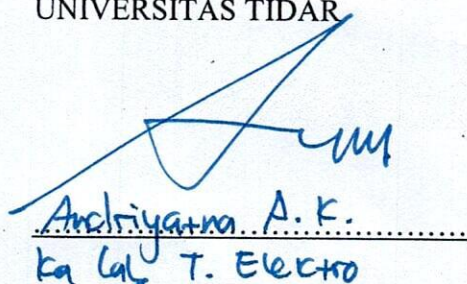 UNIVERSITAS TIDAR
Andriyatna A. K.
Ka Lab T. Elektro